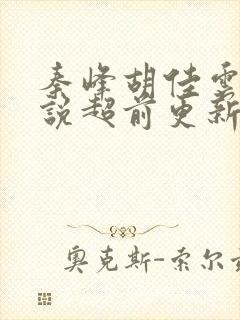 秦峰胡佳云
说超前更新
奥克斯-索尔兹